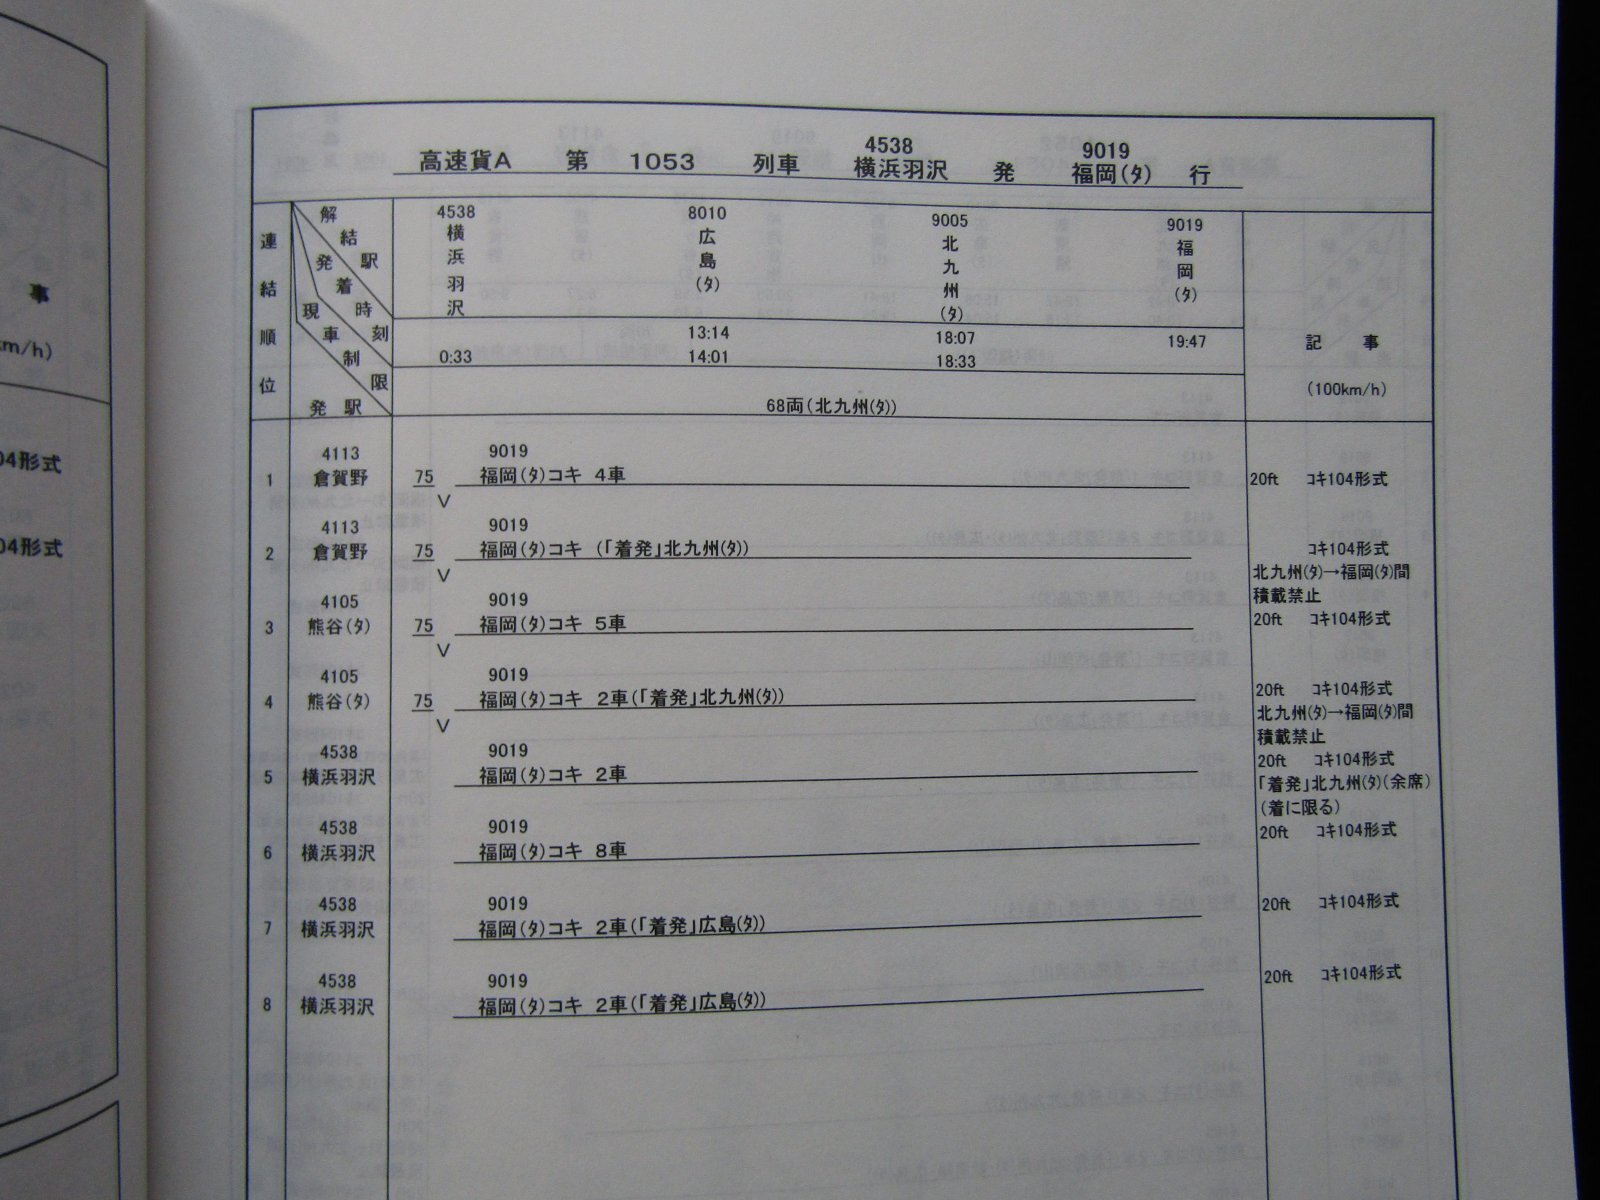 事
km/h)
04形式
04形式
高速貨A 第 1053 列車 4538 横浜羽沢 発 9019 福岡(タ) 行
連結順位
解結駅
発着時刻
現車制限
発駅
4538 横浜羽沢 0:33
8010 広島(タ) 13:14 14:01
9005 北九州(タ) 18:07 18:33
9019 福岡(タ) 19:47
記 事
(100km/h)
68両(北九州(タ))
4113 9019
1 倉賀野 75 福岡(タ)コキ 4車 20ft コキ104形式
V
4113 9019
2 倉賀野 75 福岡(タ)コキ (「着発」北九州(タ)) コキ104形式
V 北九州(タ)→福岡(タ)間
積載禁止
4105 9019
3 熊谷(タ) 75 福岡(タ)コキ 5車 20ft コキ104形式
V
4105 9019
4 熊谷(タ) 75 福岡(タ)コキ 2車(「着発」北九州(タ)) 20ft コキ104形式
V 北九州(タ)→福岡(タ)間
積載禁止
4538 9019
5 横浜羽沢 福岡(タ)コキ 2車 20ft コキ104形式
「着発」北九州(タ)(余席)
(着に限る)
4538 9019
6 横浜羽沢 福岡(タ)コキ 8車 20ft コキ104形式
4538 9019
7 横浜羽沢 福岡(タ)コキ 2車(「着発」広島(タ)) 20ft コキ104形式
4538 9019
8 横浜羽沢 福岡(タ)コキ 2車(「着発」広島(タ)) 20ft コキ104形式